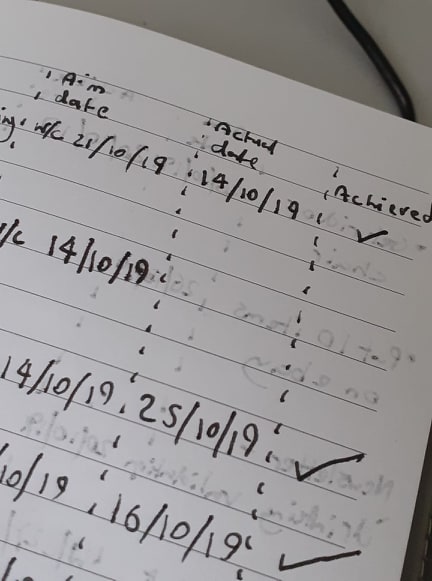 Aim
date
Actual
date
Achieved
w/c 21/10/19 14/10/19 ✓
14/10/19
14/10/19 25/10/19 ✓
10/19 16/10/19 ✓